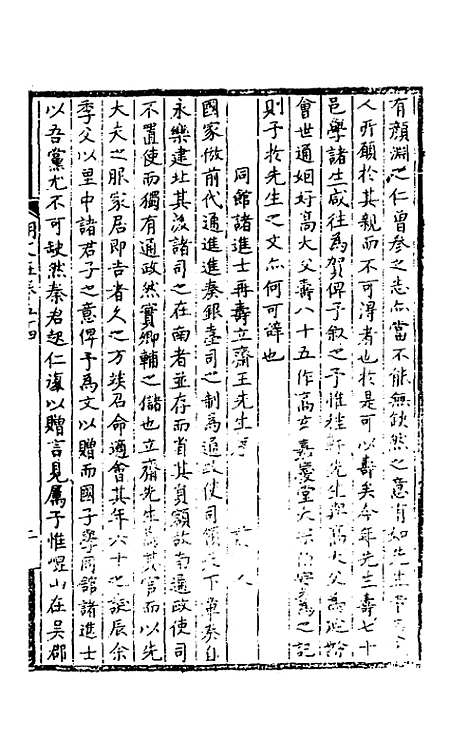 有顏淵之仁曾參之志亦當不能無歉然之意有如先生
人所願於其親而不可得者也於是可以壽矣今年先生壽七十
邑學諸生咸往為賀俾予叙之予惟桂軒先生與高大父為
會世通姻好高大父壽八十五作高玄嘉慶堂大宗伯為之記
則予於先生之文亦何可辭也
同館諸進士再壽立齋王先生序
國家倣前代通進進奏銀臺司之制為通政使司領天下章奏自
永樂建北其後諸司之在南者並存而省其員額故南通政使司
不置使而獨有通政然實卿輔之儲也立齋先生為其官而以先
大夫之服家居即吉者久之方竢召命適會其年六十之誕辰余
季父以里中諸君子之意俾予為文以贈而國子學同館諸進士
以吾黨尤不可缺然秦君起仁濩以贈言見屬予惟崑山在吳郡